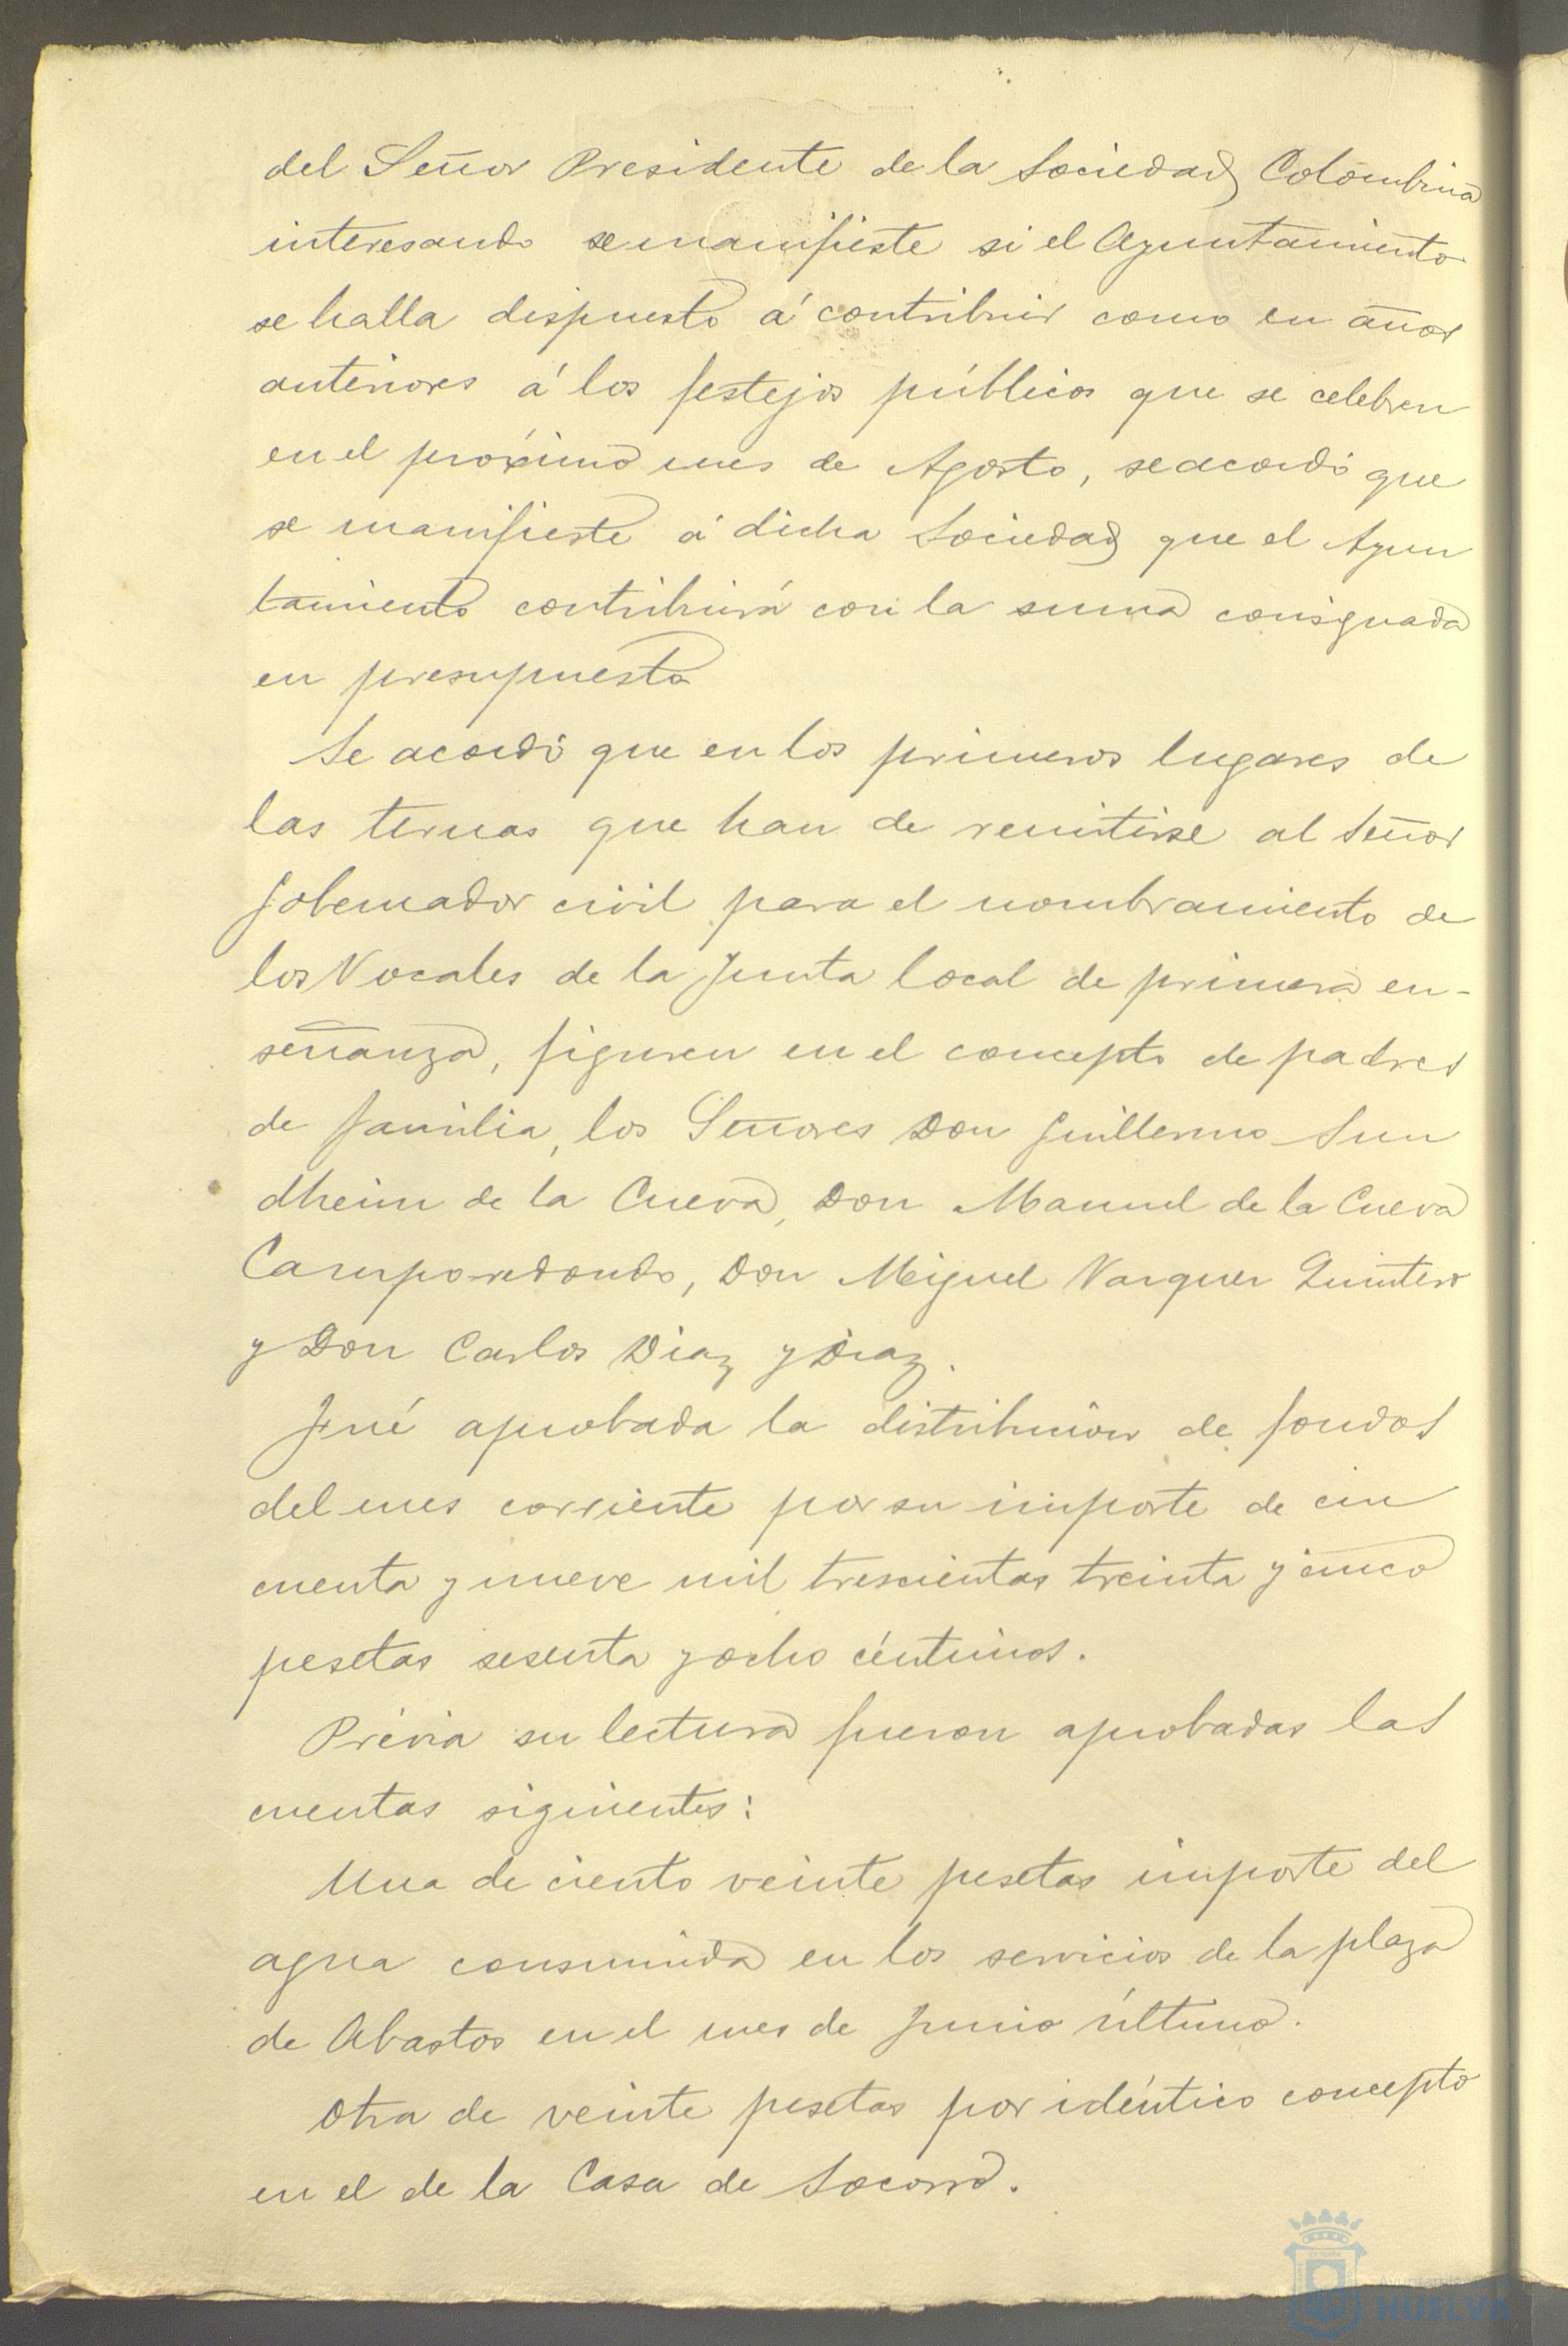 del Señor Presidente de la Sociedad Colombina
interesando se manifieste si el Ayuntamiento
se halla dispuesto á contribuir como en años
anteriores á los festejos públicos que se celebren
en el próximo mes de Agosto, se acordó que
se manifieste á dicha Sociedad que el Ayun
tamiento contribuirá con la suma consignada
en presupuesto
Se acordó que en los primeros lugares de
las ternas que han de remitirse al Señor
Gobernador civil para el nombramiento de
los Vocales de la Junta local de primera en-
señanza, figuren en el concepto de padres
de familia, los Señores Don Guillermo Sun
dheim de la Cueva, Don Manuel de la Cueva
Camporredondo, Don Miguel Vazquez Quintero
y Don Carlos Diaz y Diaz.
Fué aprobada la distribución de fondos
del mes corriente por su importe de cin
cuenta y nueve mil trescientas treinta y cinco
pesetas sesenta y ocho céntimos.
Prévia su lectura fueron aprobadas las
cuentas siguientes:
Una de ciento veinte pesetas importe del
agua consumida en los servicios de la plaza
de Abastos en el mes de Junio último.
Otra de veinte pesetas por idéntico concepto
en el de la Casa de Socorro.
Ayuntamiento
HUELVA